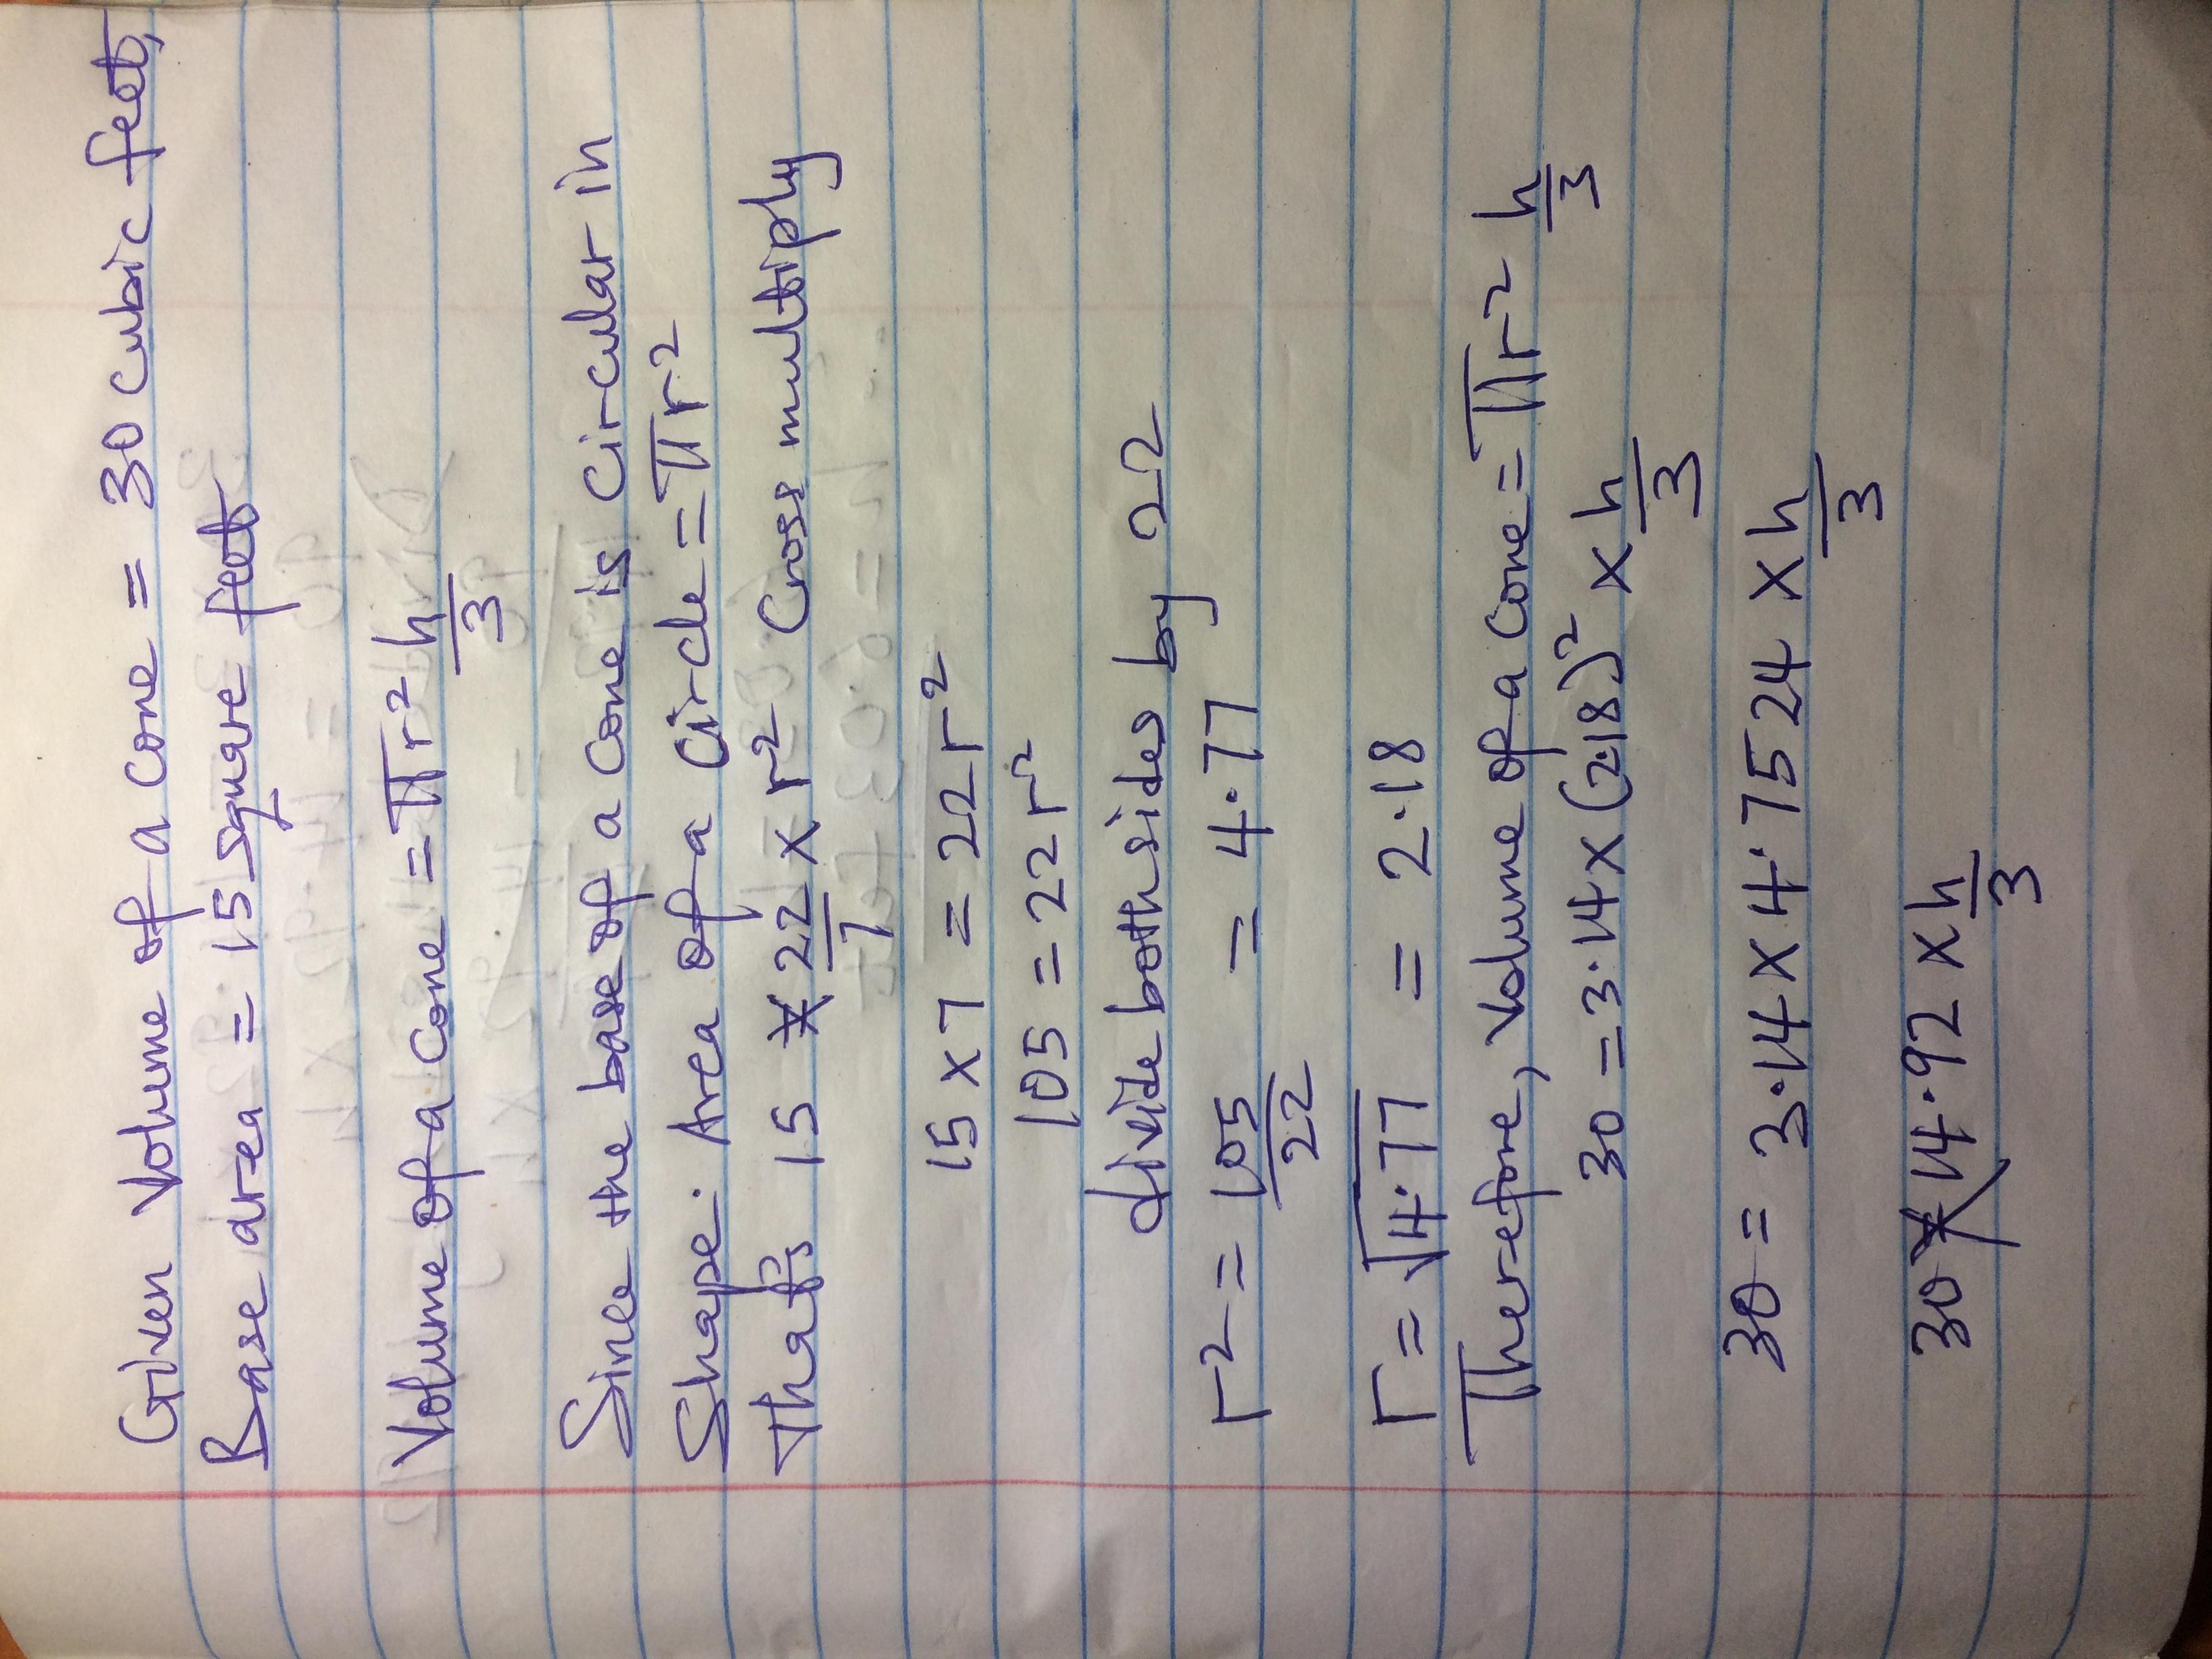 Given Volume of a cone = 30 cubic feet,
Base area = 15 square feet
Volume of a cone = πr² h/3
Since the base of a cone is circular in
Shape. Area of a circle = πr²
That's 15 * 22/7 × r² Cross multiply
15 × 7 = 22r²
105 = 22r²
divide both sides by 22
r² = 105/22 = 4.77
r = √4.77 = 2.18
Therefore, Volume of a cone = πr² h/3
30 = 3.14 × (2.18)² × h/3
30 = 3.14 × 4.7524 × h/3
30 * 14.92 × h/3